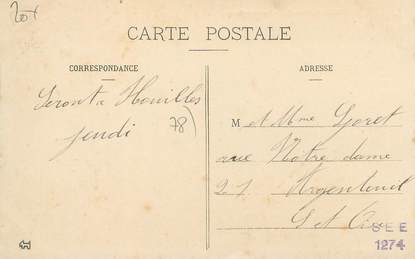 20+
CARTE POSTALE
CORRESPONDANCE
ADRESSE
Seront a Houilles
jeudi
78)
M et Mme Goret
rue Nôtre dame
27 Argenteuil
S et Oise
SEE
1274